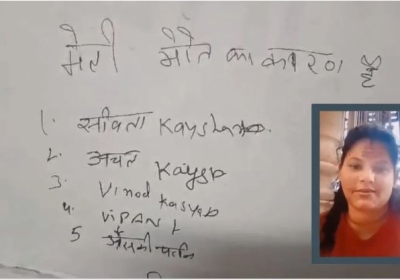 मेरी मौत का कारण है
1. सीवता Kayshap.
2. अचल Kaysp
3. Vinod Kasyap
4. VIPAN
5